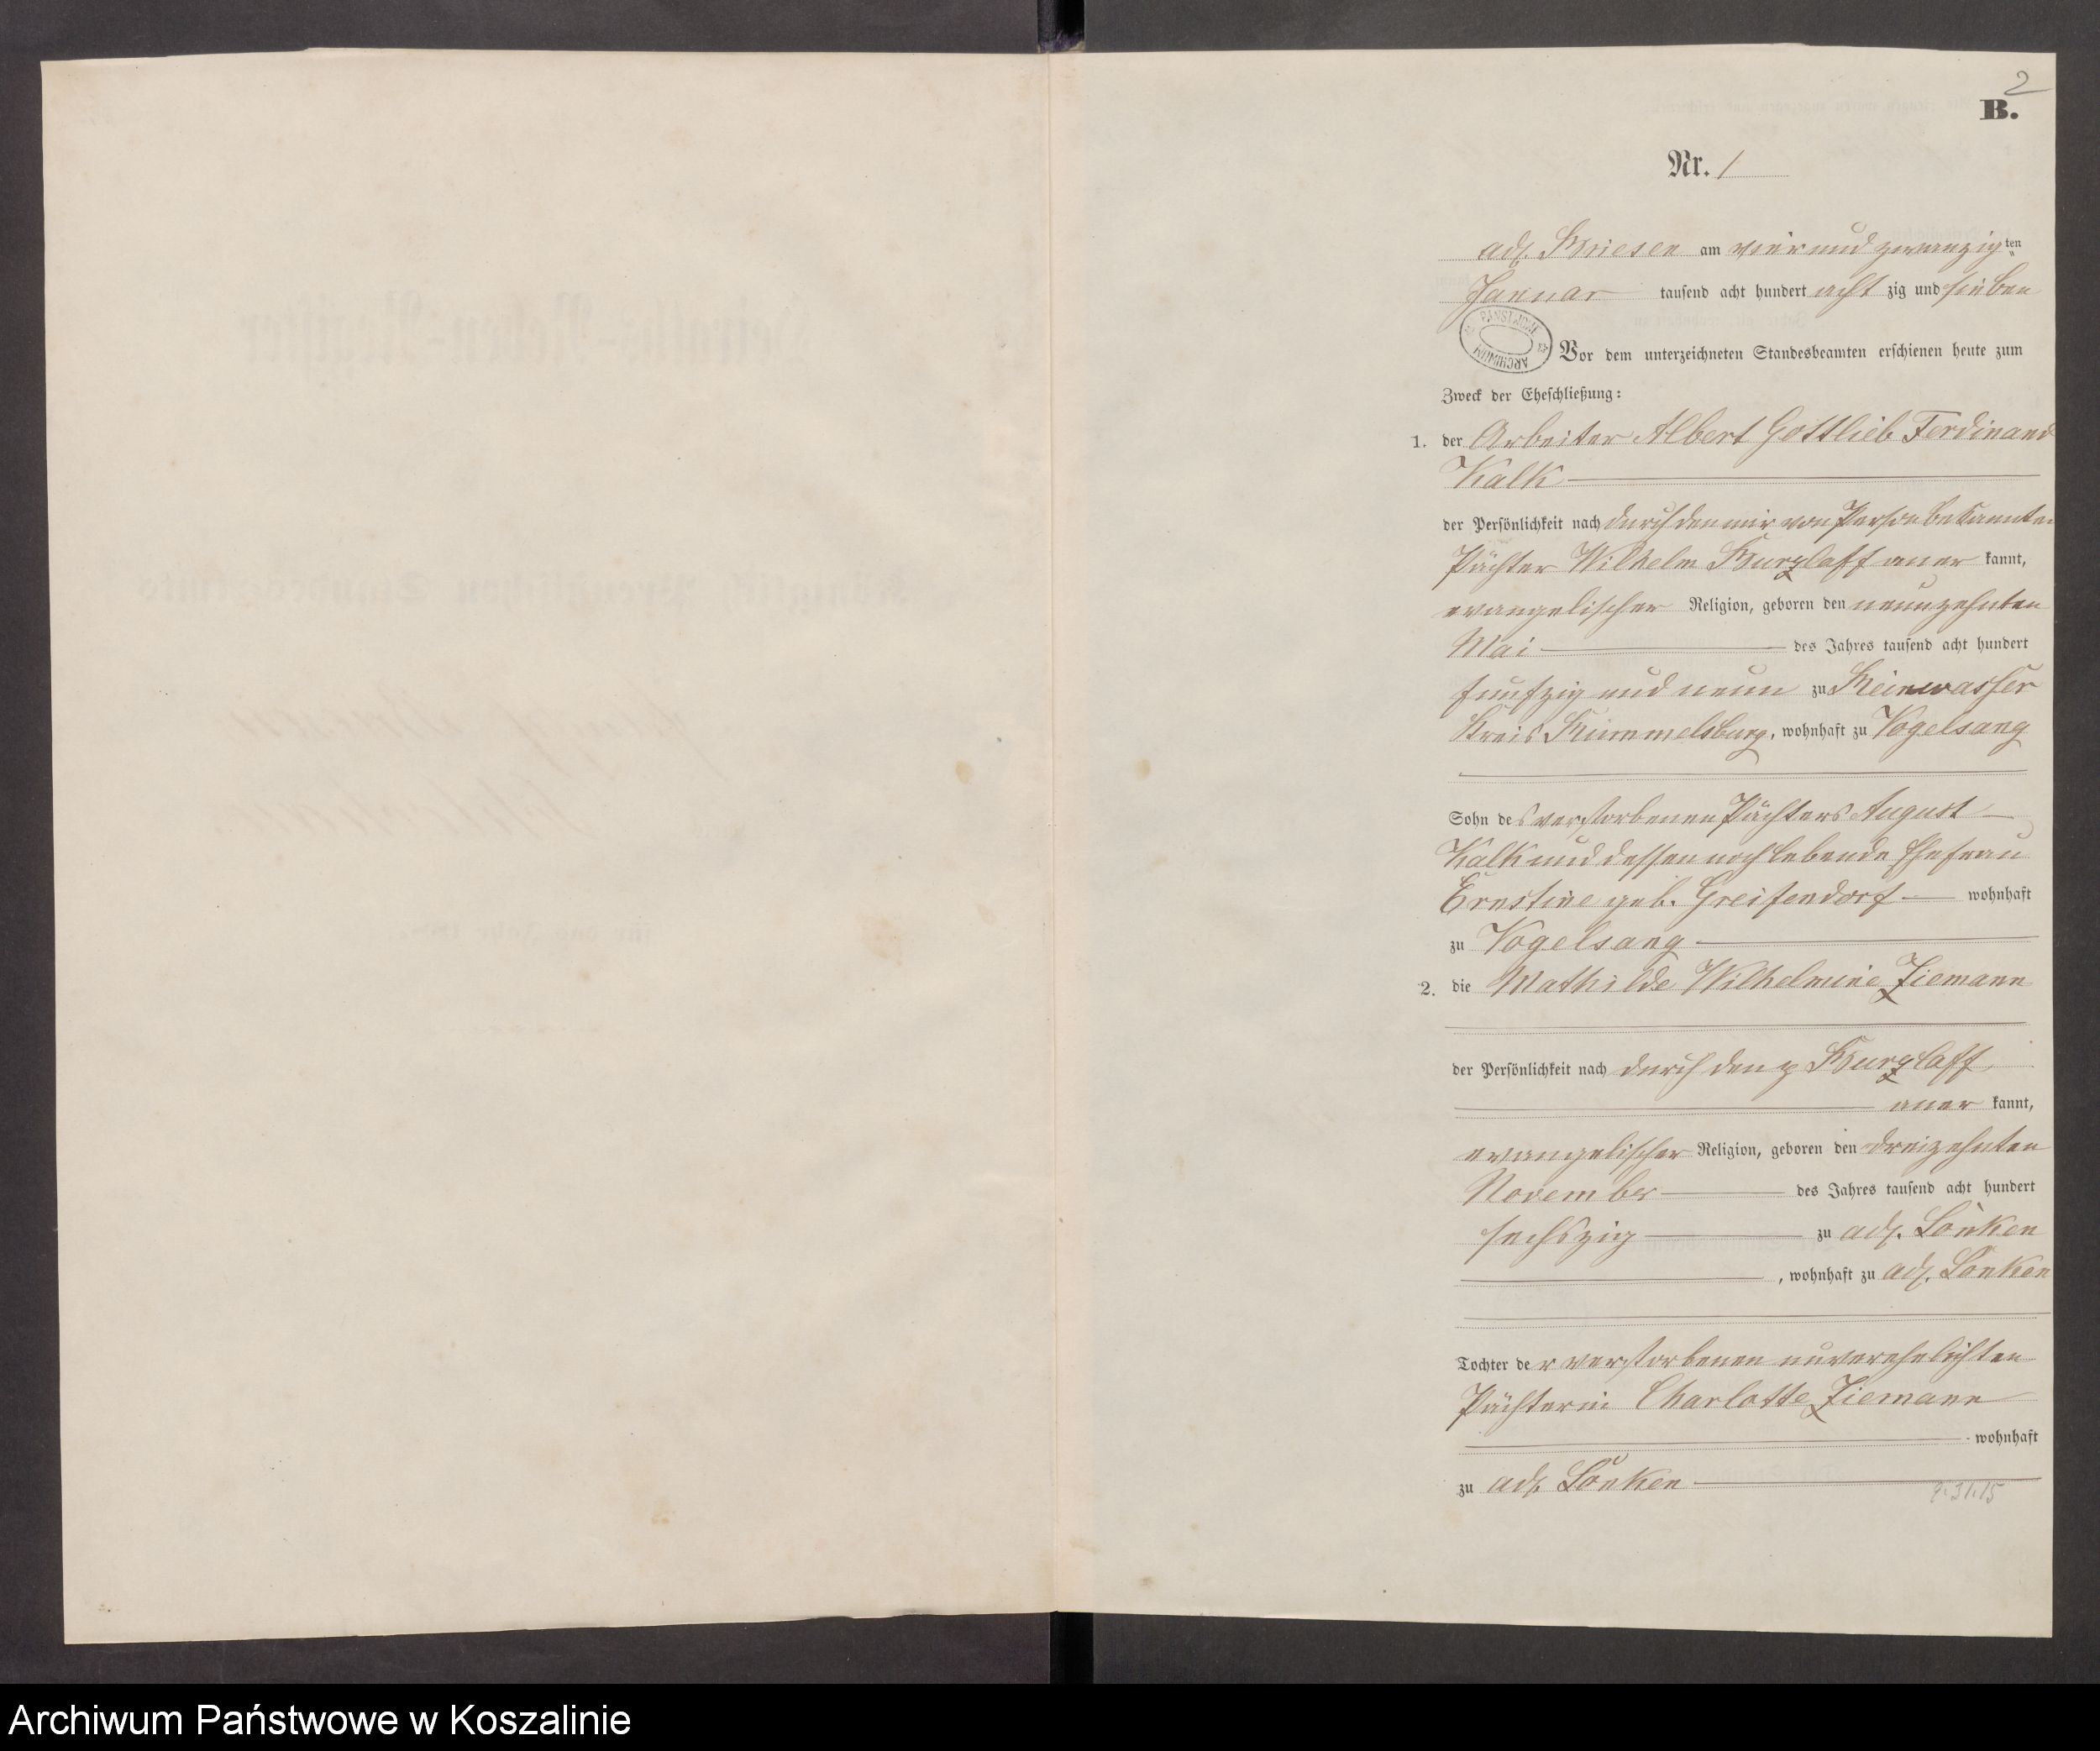 2
B.
Nr. 1
adl. Briesen am vier und zwanzig ten
Januar tausend acht hundert acht zig und sieben
PAŃSTWOWE ARCHIWUM
Vor dem unterzeichneten Standesbeamten erschienen heute zum
Zweck der Eheschließung:
1. der Arbeiter Albert Gottlieb Ferdinand
Kalk
der Persönlichkeit nach durch den mir von Person bekannten
Pächter Wilhelm Kurzlaff aner kannt,
evangelischer Religion, geboren den neunzehnten
Mai des Jahres tausend acht hundert
fünfzig und neun zu Reinwasser
Kreis Rummelsburg, wohnhaft zu Vogelsang
Sohn des verstorbenen Pächters August
Kalk und dessen noch lebende Ehefrau
Ernstine geb. Greifendorf wohnhaft
zu Vogelsang
2. die Mathilde Wilhelmine Ziemann
der Persönlichkeit nach durch den p Kurzlaff
aner kannt,
evangelischer Religion, geboren den dreizehnten
November des Jahres tausend acht hundert
sechszig zu adl. Lonken
, wohnhaft zu adl. Lonken
Tochter der verstorbenen unverehelichten
Pächterin Charlotte Ziemann
wohnhaft
zu adl. Lonken
Archiwum Państwowe w Koszalinie